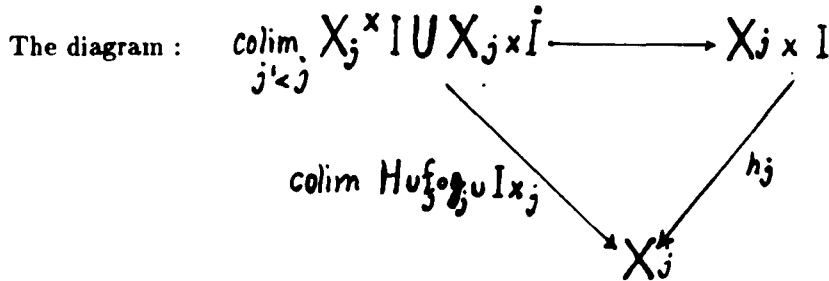 The diagram : colim X_j × I ∪ X_j × İ → X_j × I
j'<j
colim H ∪ f_j∘g_j ∪ I_{X_j} h_j
X_j